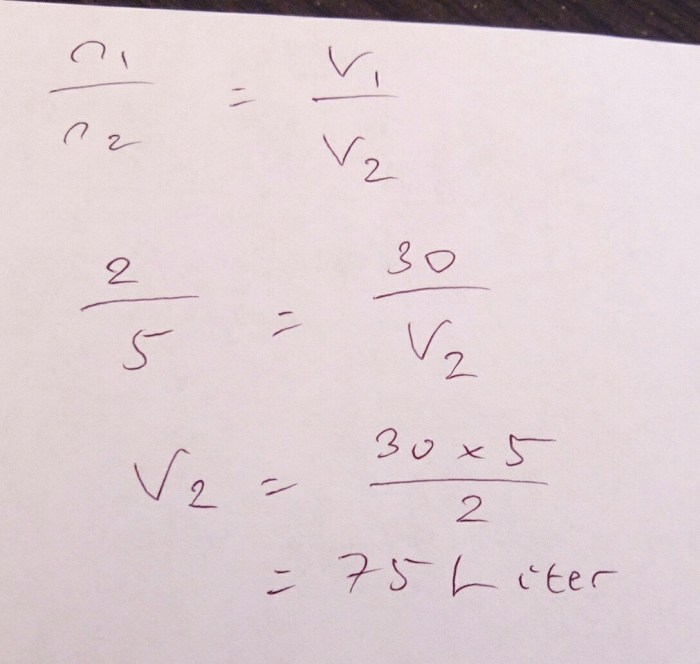 n₁/n₂ = V₁/V₂
2/5 = 30/V₂
V₂ = 30 × 5/2
= 75 Liter